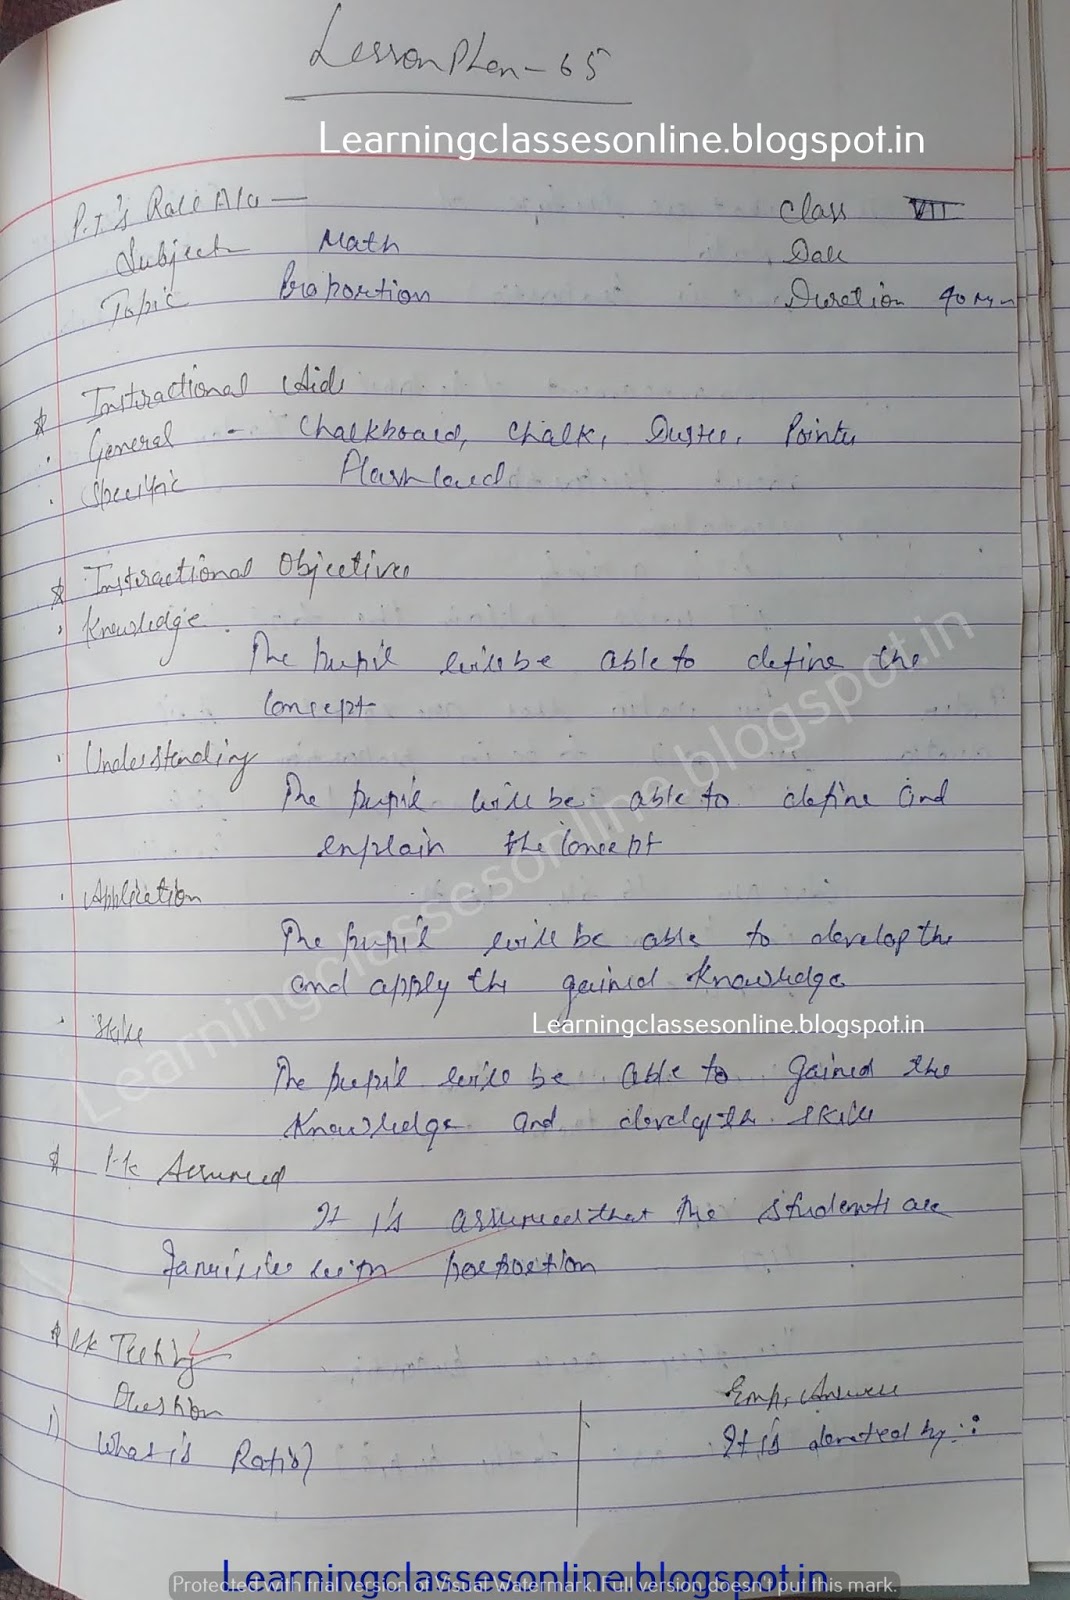 Lesson Plan - 65
Learningclassesonline.blogspot.in
P.T.'s Roll No — Class VII
Subject Math Date
Topic Proportion Duration 40 Min
* Instractional Aids
· General - Chalkboard, Chalk, Duster, Pointer
· Specific Flash Card
* Instractional Objectives
· Knowledge
The pupil will be able to define the
Concept
· Understanding
The pupil will be able to define and
explain the Concept
· Application
The pupil will be able to develop the
and apply the gained knowledge
Learningclassesonline.blogspot.in
· Skill
The pupil will be able to gained the
Knowledge and develop the skill
* P.k Assumed
It is assumed that the students are
familiar with proportion
* P.k Testing
Question Emp. Answer
1) What is Ratio? It is denoted by :
Learningclassesonline.blogspot.in
Learningclassesonline.blogspot.in
Protected with trial version of Visual Watermark. Full version doesn't put this mark.